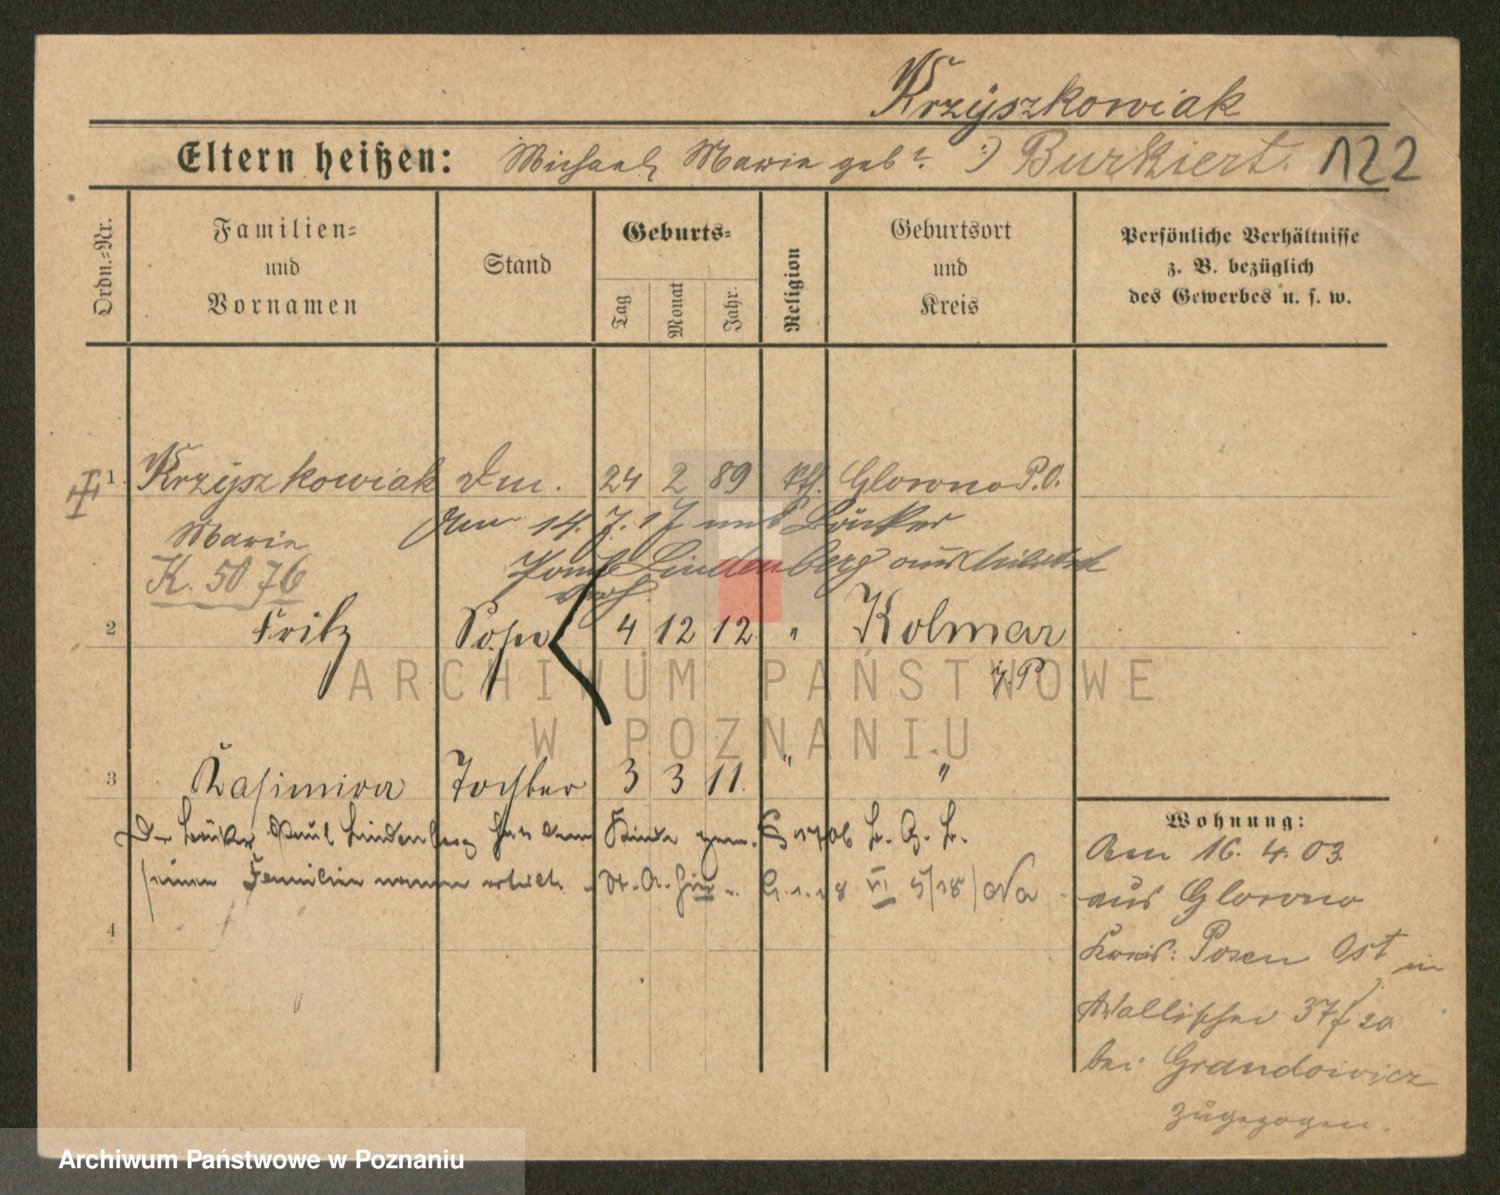 Krzyszkowiak
Eltern heißen: Michael, Marie geb. :) Burkiert. 122
Ordn.-Nr.
Familien- und Vornamen
Stand
Geburts-
Tag
Monat
Jahr.
Religion
Geburtsort und Kreis
Persönliche Verhältnisse z. B. bezüglich des Gewerbes u. s. w.
1 Krzyszkowiak Dm. 24 2 89 kth. Glowno P.O.
Marie
Am 14. 7. 17 mit Bäcker
K. 5076
Paul Lindenberg aus
verh.
2 Fritz Sohn 4 12 12 " Kolmar
i. P.
3 Kasimira Tochter 3 3 11. " "
Der Bäcker Paul Lindenberg hat dem Kinde
seinen Familiennamen erteilt
4
Wohnung:
Am 16. 4. 03
aus Glowno
Kreis: Posen Ost in
Wallischei 37/
bei Grandowicz
zugezogen.
ARCHIWUM PAŃSTWOWE
W POZNANIU
Archiwum Państwowe w Poznaniu